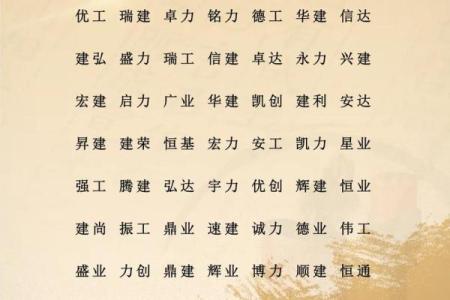 优工 瑞建 卓力 铭力 德工 华建 信达
建弘 盛力 瑞工 信建 卓达 永力 兴建
宏建 启力 广业 华建 凯创 建利 安达
昇建 建荣 恒基 宏力 安工 凯力 星业
强工 腾建 弘达 宇力 优创 辉建 恒业
建尚 振工 鼎业 速建 诚力 德业 伟工
盛业 力创 鼎建 辉业 博力 顺建 恒通